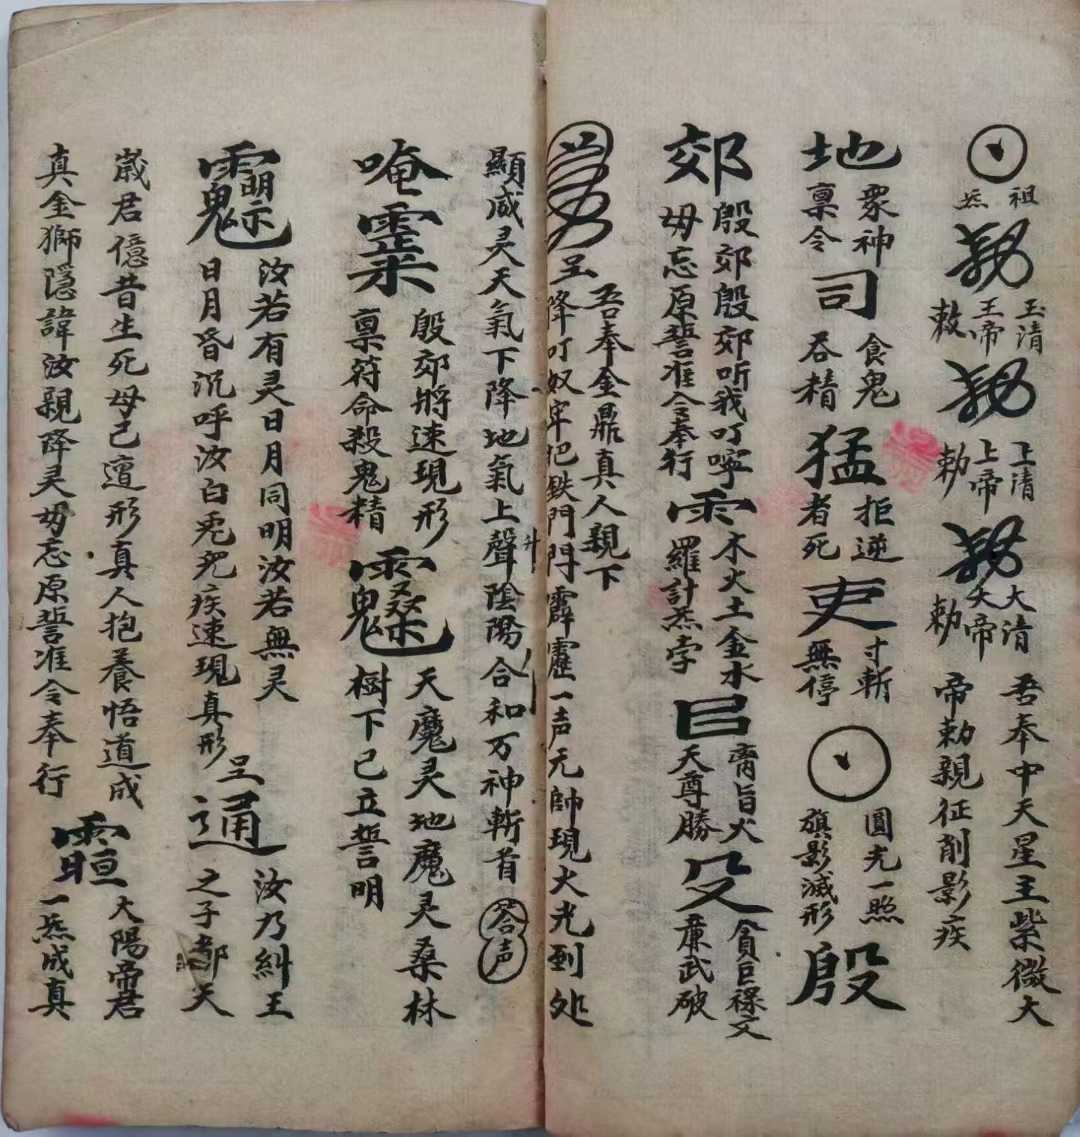 祖炁
玉清王帝敕
上清上帝勅
大清天帝勅
吾奉中天星主紫微大帝勅親征削影疾
地 眾神稟令 司 食鬼吞精 猛 拒逆者死 吏 寸斬無停
圓光一照旗影滅形 殷
郊 殷郊殷郊听我叮嚀毋忘原誓准令奉行
木火土金水羅計炁孛
天尊勝
貪巨祿文廉武破
吾奉金鼎真人親下
呈降叮奴牢把鉄門閂霹靂一声元帥現火光到処
顯威灵天氣下降地氣上聲升陰陽合和万神斬首 答声
唵 殷郊將速現形稟符命殺鬼精
天魔灵地魔灵桑林樹下已立誓明
汝若有灵日月同明汝若無灵日月昏沉呼汝白兎児疾速現真形
呈通 汝乃糾王之子都天
歲君億昔生死母已亶形真人抱養悟道成
真金獅隱諱汝親降灵毋忘原誓准令奉行
大陽帝君一炁成真